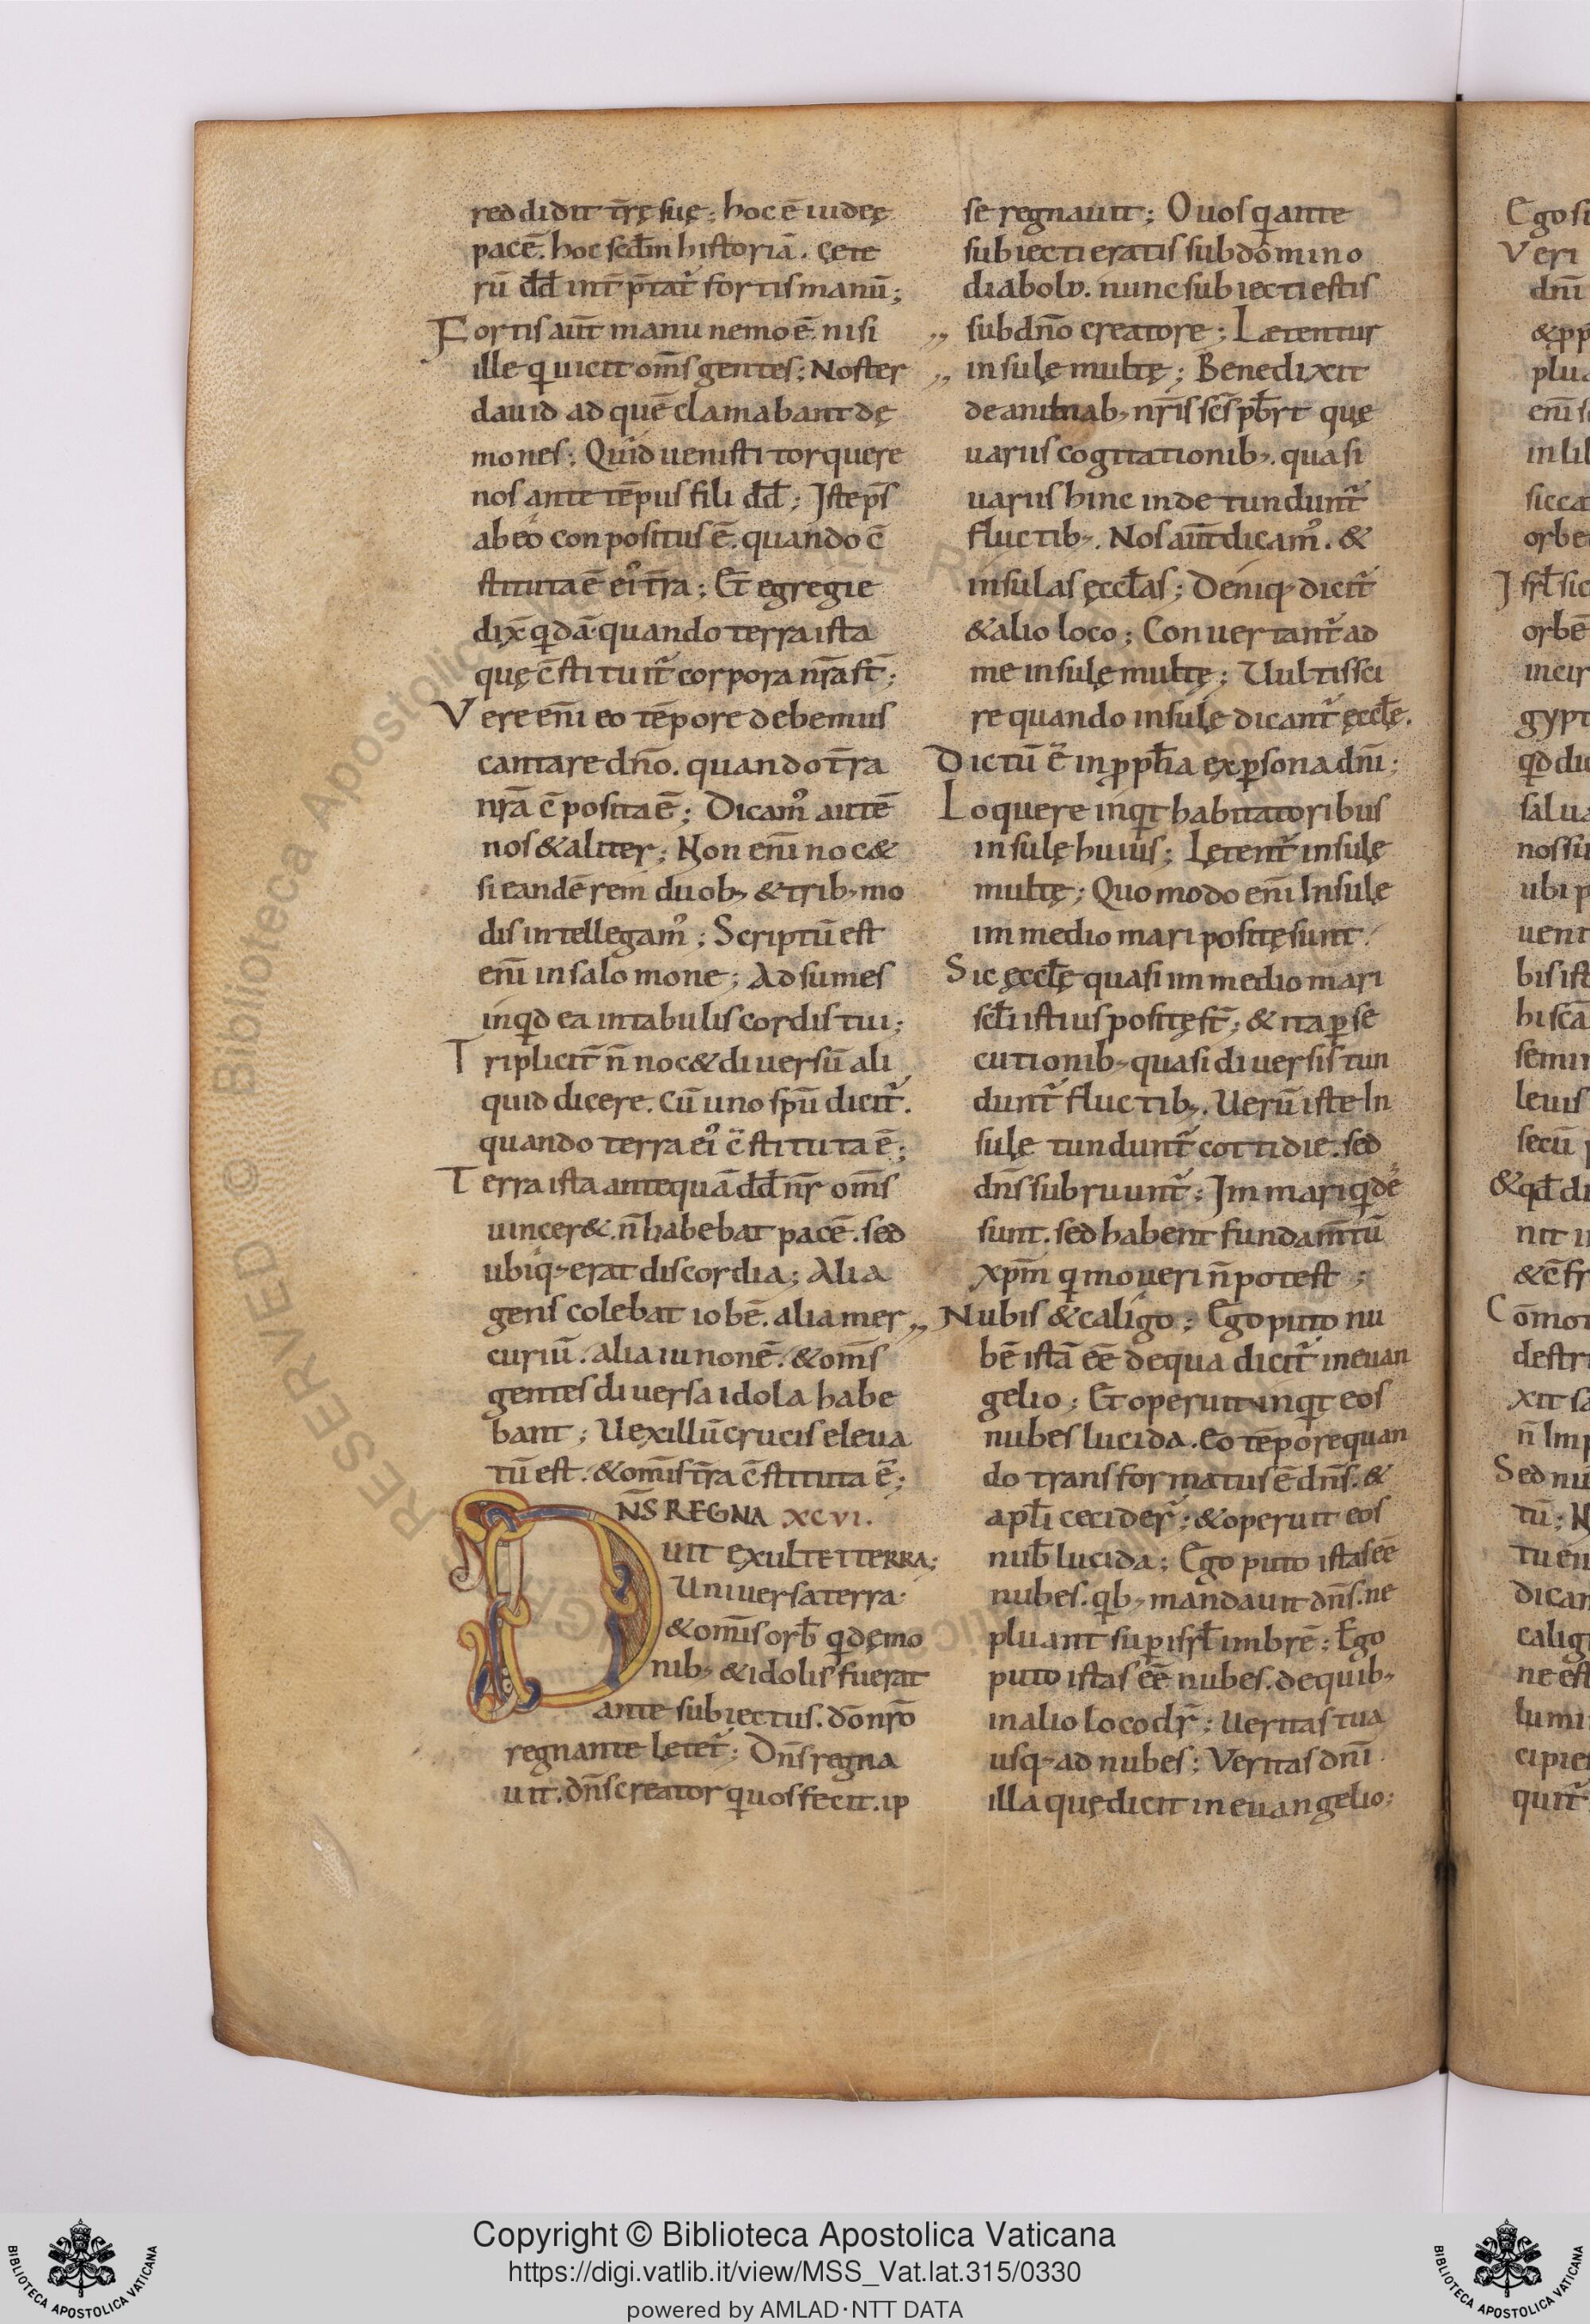 reddidit tr̄ę suę; hoc ē iudeę
pacē. hoc scd̄m historiā. Cete
rū dd̄ int̄ p̄tat᷑ fortis manū;
Fortis aūt manu nemo ē. nisi
ille q uicit om̄s gentes; Noster
dauid ad quē clamabant dę
mones; Quid uenisti torquere
nos ante tēpus fili dd̄; Iste ps̄
ab eo con positus ē. quando c̄
stituta ē ei᷒ tr̄a; Et egregie
dix̄ q̇dā. quando terra ista
quę c̄stituit᷑ corpora nr̄a st̄;
Vere enī eo tēpore debemus
cantare dn̄o. quando tr̄a
nr̄a c̄posita ē; Dicam᷒ autē
nos & aliter; Non enī noc&
si eandē rem duob; & trib; mo
dis intellegam᷒; Scriptū est
enī in salomone; Adsumes
inqd ea in tabulis cordis tui;
Triplicit̄ n̄ noc& diuersū ali
quid dicere. cū uno sp̄u dicit᷑.
quando terra ei᷒ c̄stituta ē;
Terra ista antequā dd̄ nr̄ om̄s
uincer&. n̄ habebat pacē. sed
ubiq; erat discordia; Alia
gens colebat iobē. alia mer
curiū. alia iunonē. & om̄s
gentes diuersa idola habe
bant; Uexillū crucis eleua
tū est. & om̄is tr̄a c̄stituta ē;
DN̄S REGNA XCVI.
UIT EXULTET TERRA;
Uniuersa terra.
& om̄is orb̄ q dęmo
nib; & idolis fuerat
ante subiectus. dō nr̄o
regnante lętet᷑; Dn̄s regna
uit. dn̄s creator quos fecit. ip
se regnauit; O uos q ante
subiecti eratis sub domino
diabolo. nunc subiecti estis
,, sub dn̄o creatore; Lætentur
,, insulę multę; Benedixit
de animab; nr̄is scs̄ pb̄rt quę
uariis cogitationib;. quasi
uariis hinc inde tundunt᷑
fluctib;. Nos aūt dicam᷒. &
insulas ęccl̄as; Deniq; dicit᷑
& alio loco; Conuertant᷑ ad
me insulę multę; Uultis sci
re quando insulę dicant᷑ ęccl̄ę.
Dictū ē in pph̄ia ex psona dn̄i;
Loquere inqt habitatoribus
insulę huius; Lętent᷑ insulę
multę; Quomodo enī Insulę
im medio mari positę sunt.
Sic ęccl̄ę quasi im medio mari
scl̄i istius positę st̄; & ita p se
cutionib; quasi diuersis tun
dunt᷑ fluctib;. Uerū iste In
sulę tundunt᷑ cottidie. sed
dn̄s subruunt᷑; Im mari qdē
sunt. sed habent fundam̄tū
xpm̄ q moueri n̄ potest;
,, Nubis & caligo; Ego puto nu
bē istā eē de qua dicit᷑ in euan
gelio; Et operuit inqt eos
nubes lucida. Eo tēpore quan
do transformatus ē dn̄s. &
apl̄i cecider᷑; & operuit eos
nub̄ lucida; Ego puto istas eē
nubes. qb; mandauit dn̄s. ne
pluant sup isrl̄ imbrē; Ego
puto istas eē nubes. de quib;
in alio loco dr̄; Ueritas tua
usq; ad nubes; Veritas dn̄i.
illa quę dicit in euangelio;
Copyright © Biblioteca Apostolica Vaticana
https://digi.vatlib.it/view/MSS_Vat.lat.315/0330
powered by AMLAD·NTT DATA
BIBLIOTECA APOSTOLICA VATICANA
BIBLIOTECA APOSTOLICA VATICANA